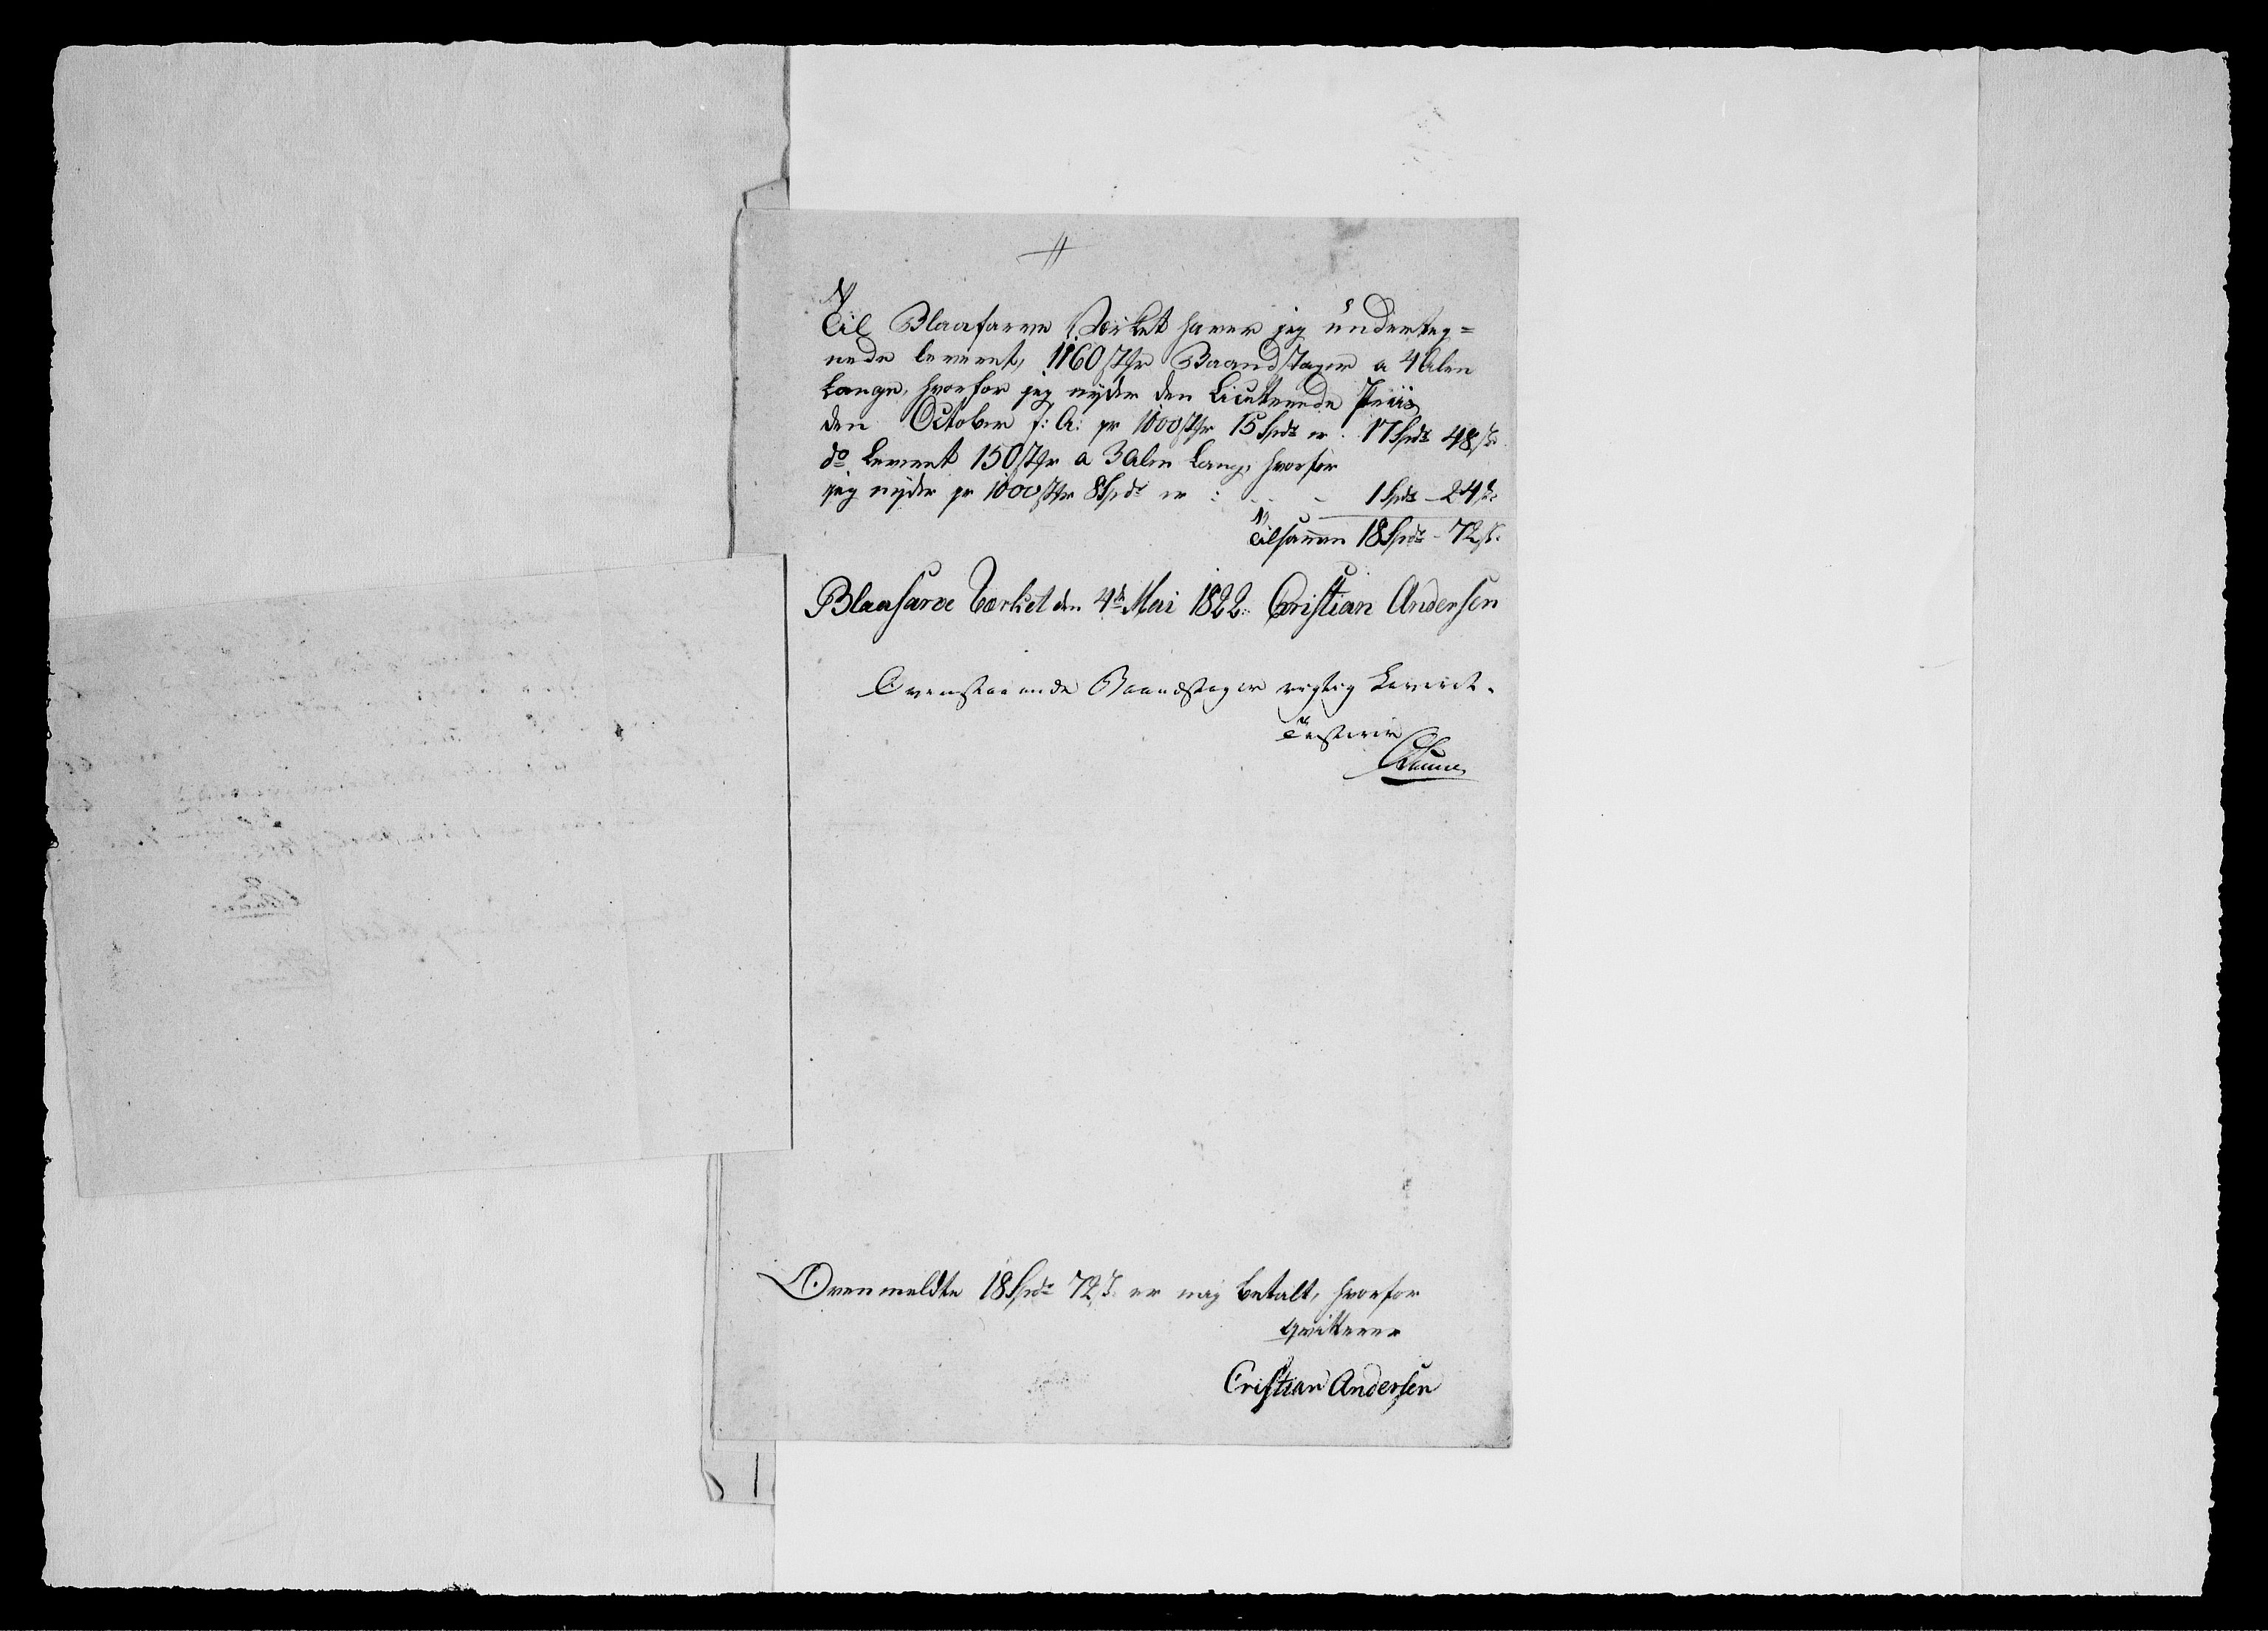 Til Blaafarve Værket haver jeg underteg=
nede leveret, 1160 Stkr Baandstager a 4 Alen
Lange, hvorfor jeg nyder den Liciterede Priis
den October f: A: pr 1000 Stkr 15 Spdr er 17 Spdr 48 s
do Leveret 150 Stkr a 3 Alen Lang, hvorfor
jeg nyder pr 1000 Stkr 8 Spdr er : - - 1 Spdr - 24 s
Tilsamen 18 Spdr - 72 s.
Blaafarve Værket den 4de Mai 1822. Cristian Andersen
Ovenstaaende Baandstager rigtig Leveret.
Testerer
Ovenmeldte 18 Spdr 72 s er mig betalt, hvorfor
qvitterer
Cristian Andersen